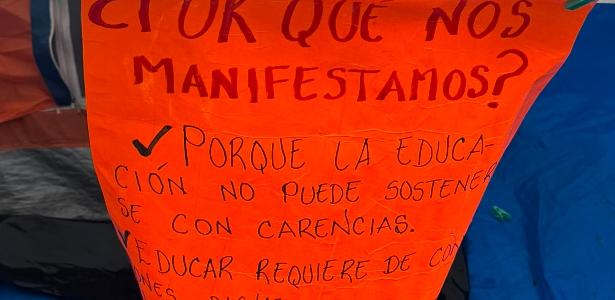 ¿POR QUÉ NOS
MANIFESTAMOS?
✓ PORQUE LA EDUCA-
CIÓN NO PUEDE SOSTENER
SE CON CARENCIAS.
✓ EDUCAR REQUIERE DE